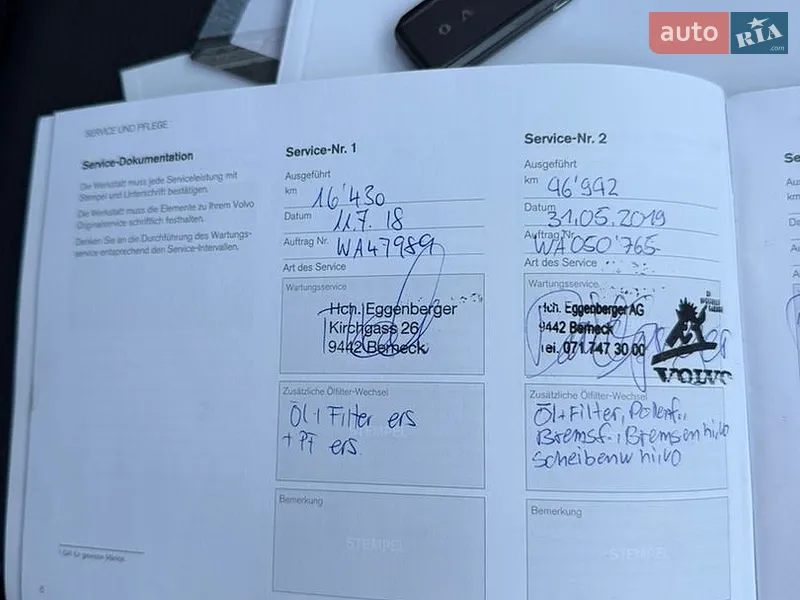 auto
RIA
.com
SERVICE UND PFLEGE
Service-Dokumentation
Die Werkstatt muss jede Serviceleistung mit
Stempel und Unterschrift bestätigen.
Die Werkstatt muss die Elemente zu Ihrem Volvo
Originalservice schriftlich festhalten.
Denken Sie an die Durchführung des Wartungs-
service entsprechend den Service-Intervallen.
Service-Nr. 1
Ausgeführt
km 16'430
Datum 11.7.18
Auftrag Nr. WA47989
Art des Service
Wartungsservice
Hch. Eggenberger
Kirchgass 26
9442 Berneck
Zusätzliche Ölfilter-Wechsel
Öl + Filter ers
+ PF ers.
STEMPEL
Bemerkung
STEMPEL
Service-Nr. 2
Ausgeführt
km 46'942
Datum 31.05.2019
Auftrag Nr. WA050'765
Art des Service
Wartungsservice
Hch. Eggenberger AG
9442 Berneck
Tel. 071 747 30 00
VOLVO
Zusätzliche Ölfilter-Wechsel
Öl + Filter, Pollenf.,
Bremsf., Bremsen hi, vo
Scheibenw hi, vo
Bemerkung
STEMPEL
6